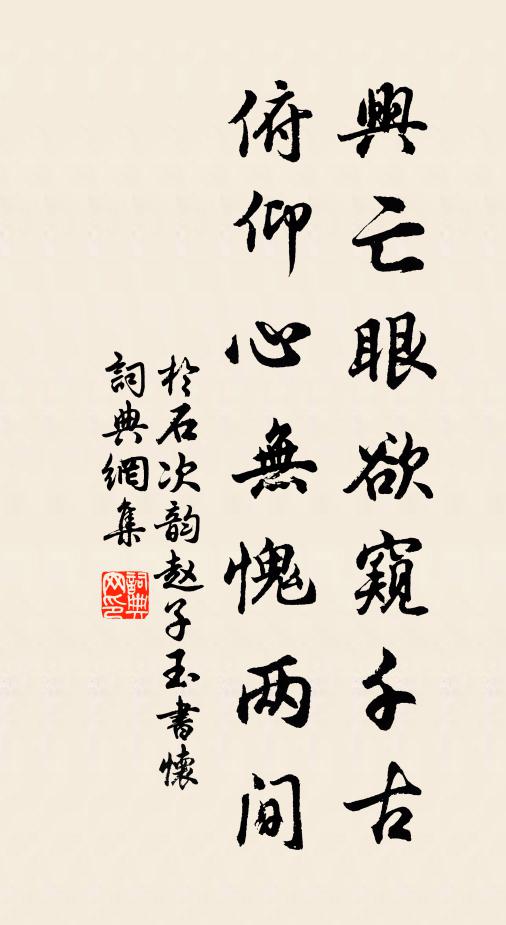 興亡眼欲窺千古
俯仰心無愧两间
於石次韵赵子玉書懷
詞典網集
詞典网印